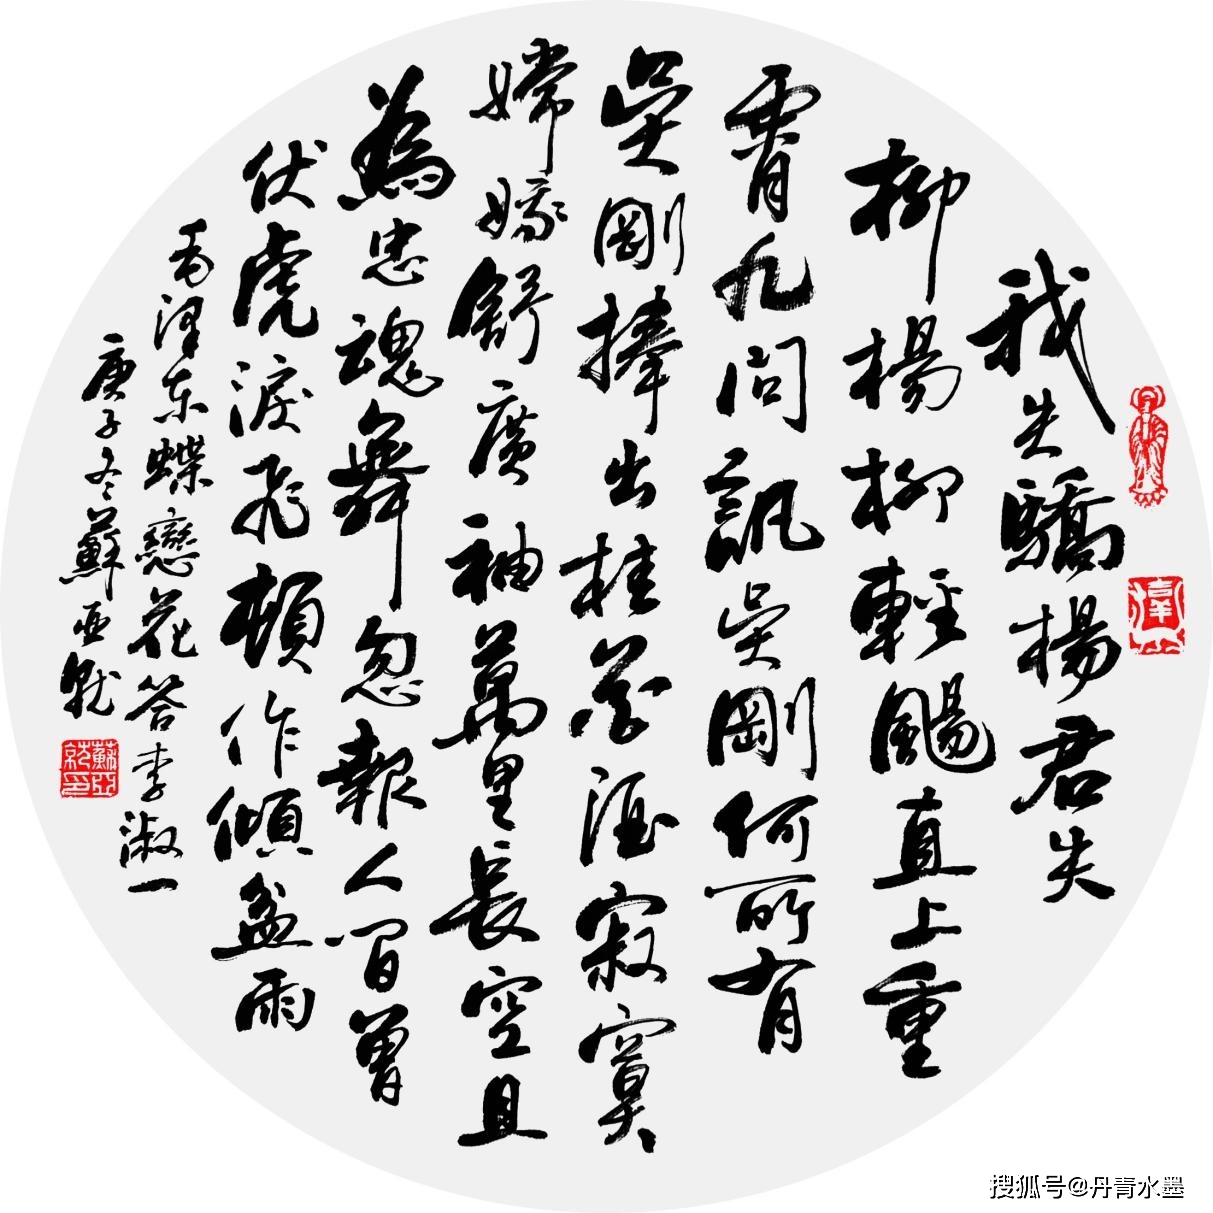 我失驕楊君失
柳楊柳輕颺直上重
霄九問訊吳剛何所有
吳剛捧出桂花酒寂寞
嫦娥舒廣袖萬里長空且
為忠魂舞忽報人間曾
伏虎淚飛頓作傾盆雨
毛澤东蝶戀花答李淑一
庚子冬蘇亞就
蘇亞就印
搜狐号@丹青水墨